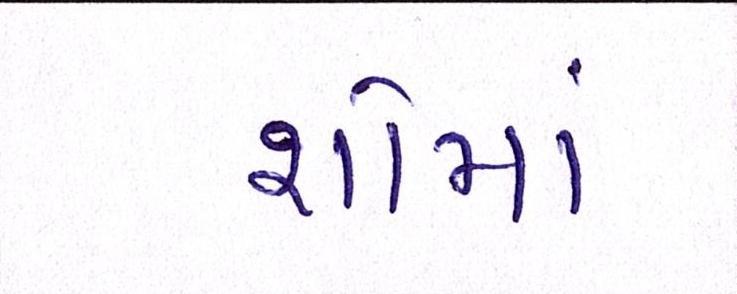 શોમાં